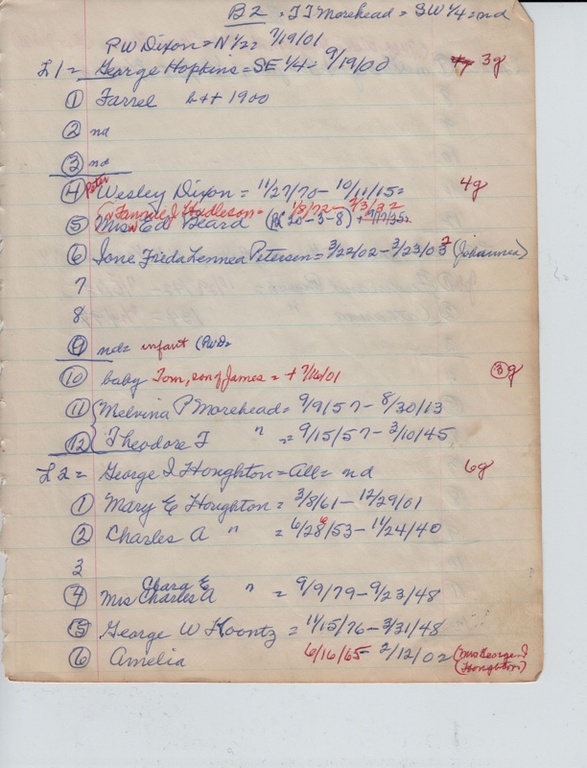 B2 = T T Morehead = SW 1/4 = nd
P W Dixon = N 1/2 = 7/19/01
L1 = George Hopkins = SE 1/4 = 9/19/00 3g
① Farrel 1900
② nd
③ nd
④ Peter Wesley Dixon = 11/27/70 - 10/11/15 = 4g
= Fannie J Hudleson = 1/8/72 - 2/3/32
⑤ Mrs Ed Beard (Pd 20-3-8) + 7/17/35
⑥ Ione Frieda Lennea Peterson = 3/22/02 - 3/23/03 2 (Johannes)
7
8
⑨ nd = infant (PWD=
⑩ baby Tom, son of James = + 7/16/01 ③g
⑪ Melvina P Morehead = 9/9/57 - 8/30/13
⑫ Theodore F " = 9/15/57 - 3/10/45
L2 = George I Houghton = all = nd 6g
① Mary E Houghton = 3/8/61 - 12/29/01
② Charles A " = 6/28/53 - 11/24/40
3
Clara E
④ Mrs Charles A " = 9/9/79 - 9/23/48
⑤ George W Koontz = 11/15/76 - 3/31/48
⑥ Amelia 6/16/65 - 2/12/02 (Mrs George I
Houghton)